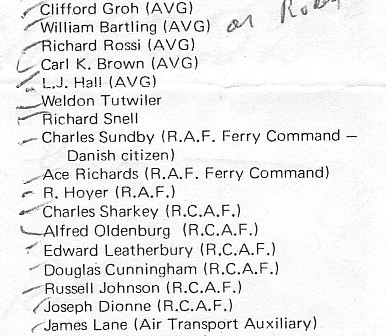 Clifford Groh (AVG)
William Bartling (AVG) or
Richard Rossi (AVG)
Carl K. Brown (AVG)
L.J. Hall (AVG)
Weldon Tutwiler
Richard Snell
Charles Sundby (R.A.F. Ferry Command –
Danish citizen)
Ace Richards (R.A.F. Ferry Command)
R. Hoyer (R.A.F.)
Charles Sharkey (R.C.A.F.)
Alfred Oldenburg (R.C.A.F.)
Edward Leatherbury (R.C.A.F.)
Douglas Cunningham (R.C.A.F.)
Russell Johnson (R.C.A.F.)
Joseph Dionne (R.C.A.F.)
James Lane (Air Transport Auxiliary)